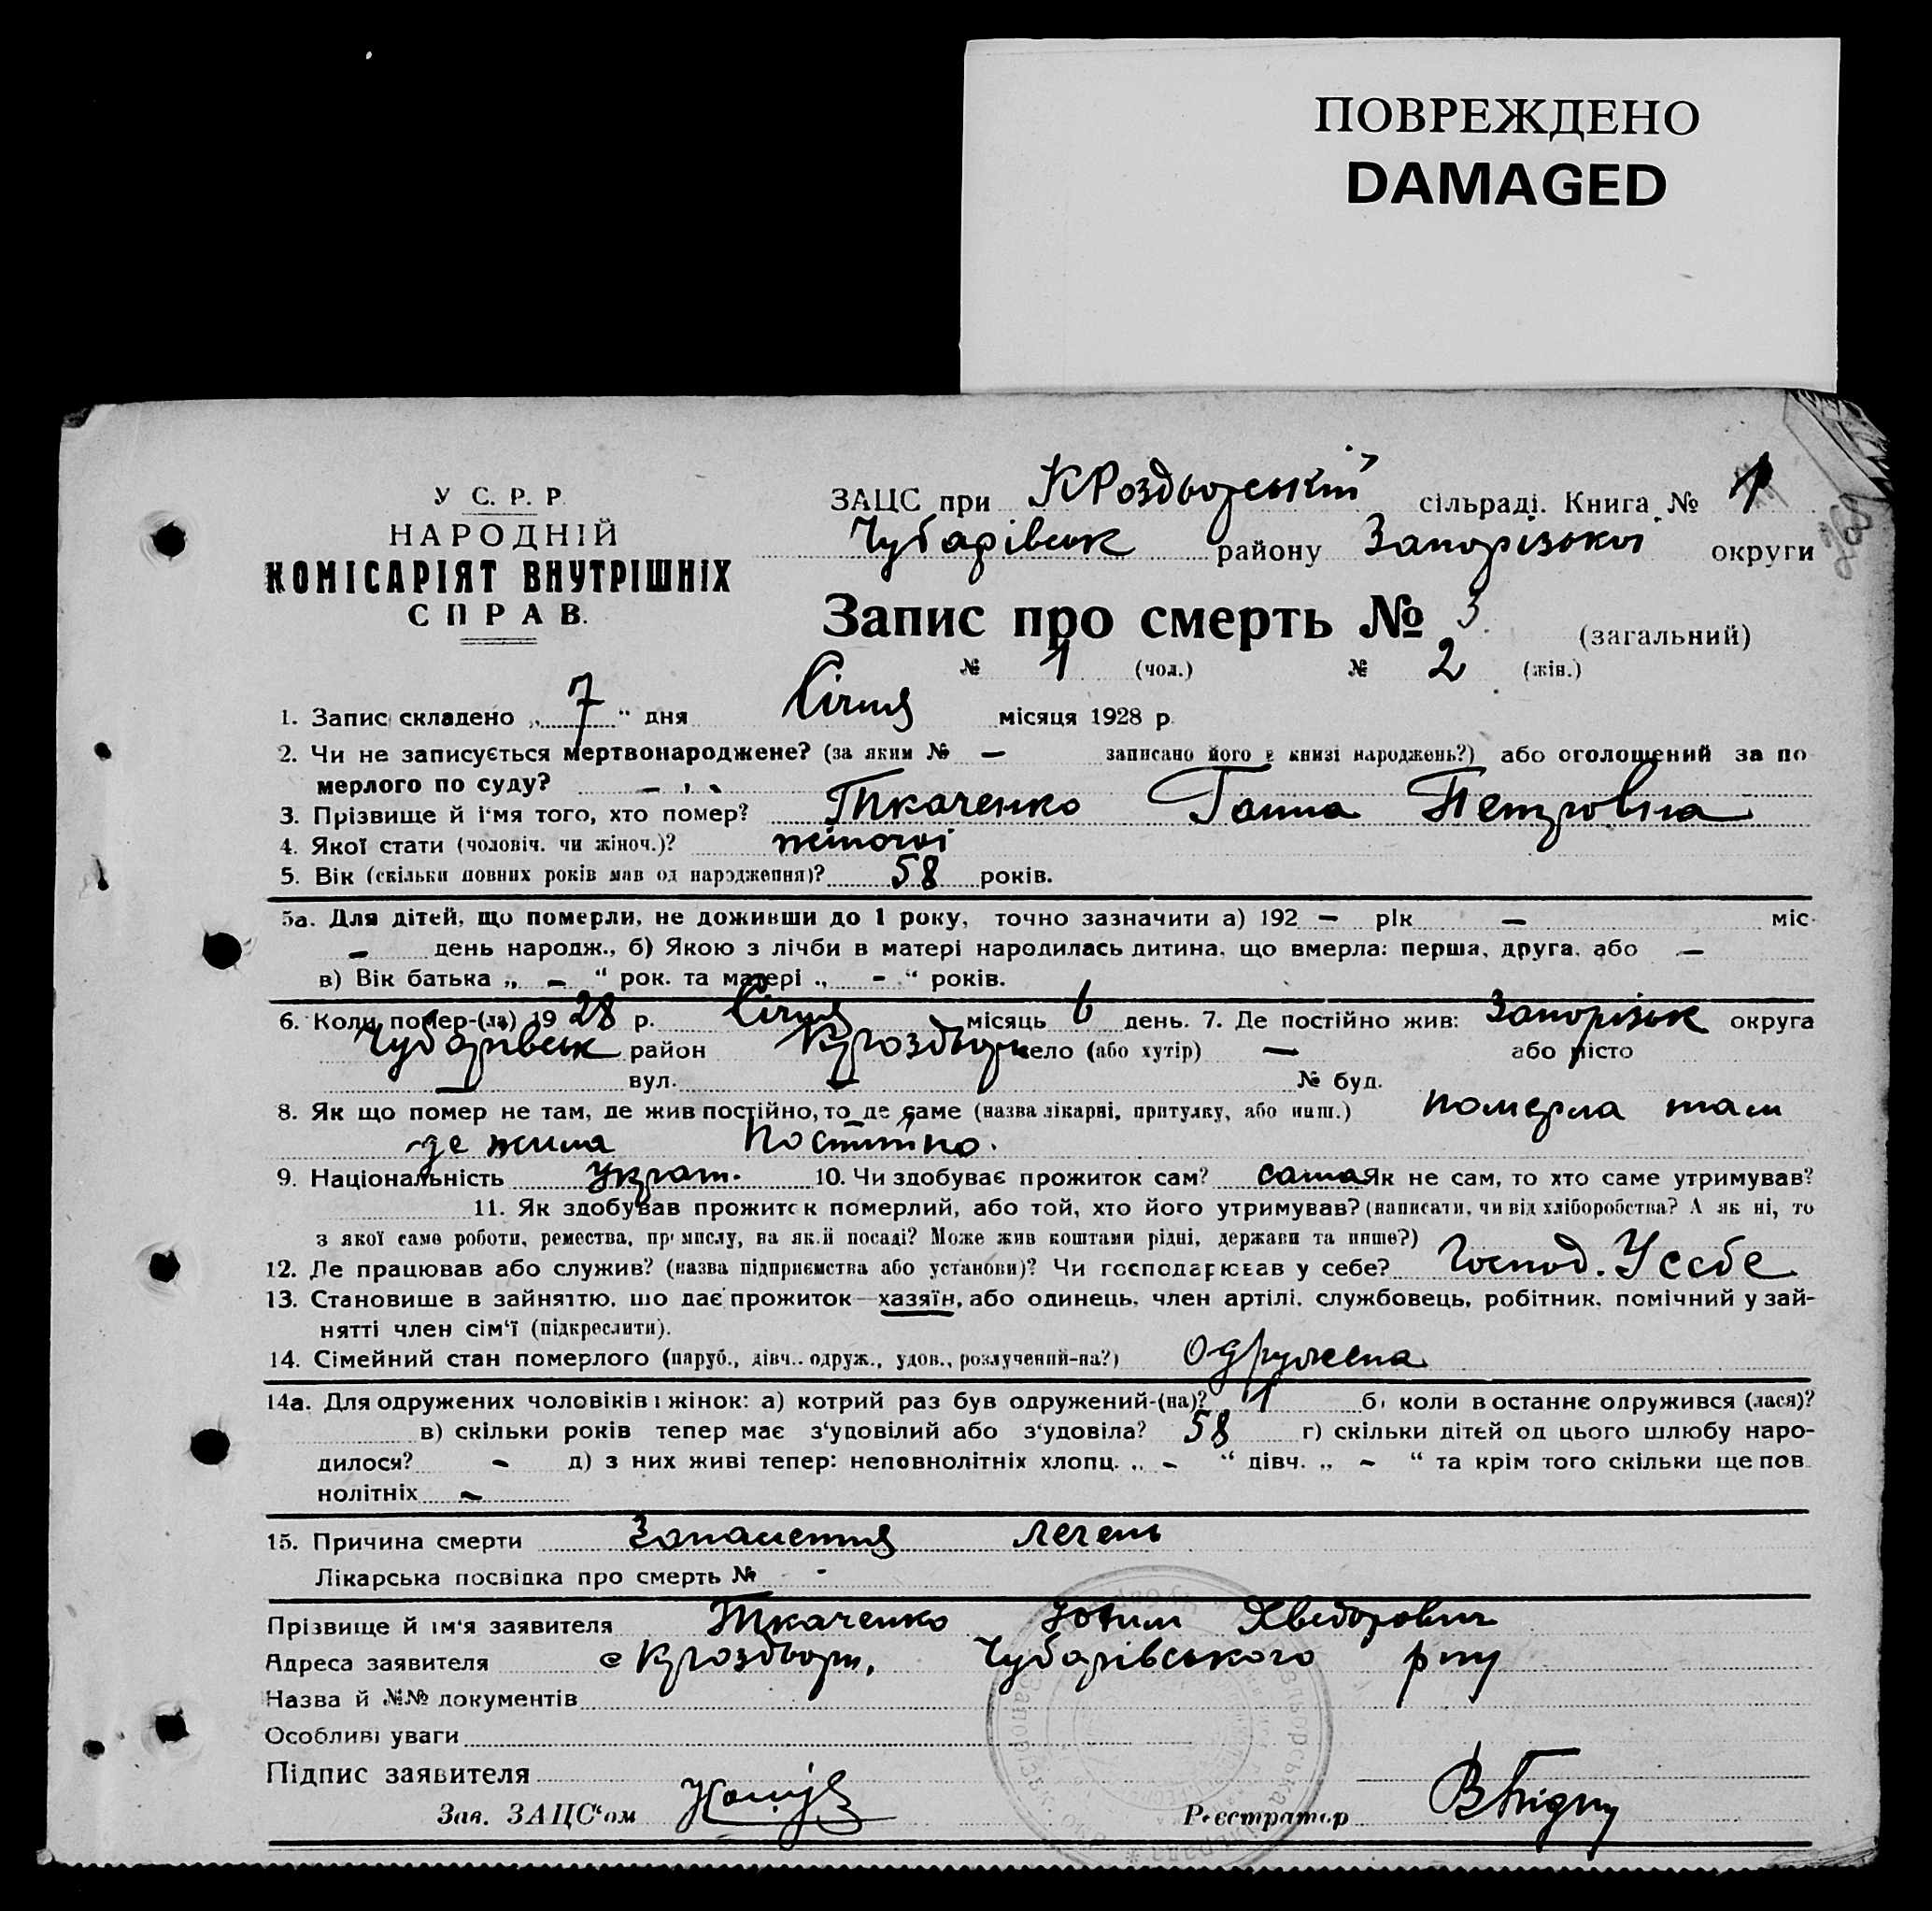 ПОВРЕЖДЕНО
DAMAGED
У С. Р. Р.
НАРОДНІЙ
КОМІСАРІЯТ ВНУТРІШНІХ
СПРАВ.
ЗАЦС при КРоздорський сільраді. Книга №
Чубарівськ району Запорізької округи
Запис про смерть № 3 (загальний)
№ 1 (чол.) № 2 (жін.)
1. Запис складено „ 7 “ дня Січня місяця 1928 р.
2. Чи не записується мертвонароджене? (за яким № — записано його в книзі народжень?) або оголошений за по
мерлого по суду? — „ —
3. Прізвище й ім‘я того, хто помер? Ткаченко Ганна Петровна
4. Якої стати (чоловіч. чи жіноч.)? жіночої
5. Вік (скільки повних років мав од народження)? 58 років.
5а. Для дітей, що померли, не доживши до 1 року, точно зазначити а) 192 — рік — міс.
— день народж., б) Якою з лічби в матері народилась дитина, що вмерла: перша, друга, або —
в) Вік батька „ — “ рок. та матері „ — “ років.
6. Коли помер-(ла) 1928 р. Січня місяць 6 день. 7. Де постійно жив: Запорізьк округа
Чубарівськ район Кроздори село (або хутір) — або місто
— вул. — № буд.
8. Як що помер не там, де жив постійно, то де саме (назва лікарні, притулку, або инш.) померла там
де жила постійно.
9. Національність україн. 10. Чи здобуває прожиток сам? сама Як не сам, то хто саме утримував?
11. Як здобував прожиток померлий, або той, хто його утримував? (написати, чи від хліборобства? А як ні, то
з якої саме роботи, ремества, промислу, на якій посаді? Може жив коштами рідні, держави та инше?)
12. Де працював або служив? (назва підприємства або установи)? Чи господарював у себе? Господ. У себе
13. Становище в зайняттю, що дає прожиток—хазяїн, або одинець, член артілі, службовець, робітник, помічний у зай-
нятті член сім‘ї (підкреслити).
14. Сімейний стан померлого (паруб., дівч., одруж., удов., розлучений-на?) Одружена
14а. Для одружених чоловіків і жінок: а) котрий раз був одружений-(на)? 1 б) коли в останнє одружився (лася)?
в) скільки років тепер має з‘удовілий або з‘удовіла? 58 г) скільки дітей од цього шлюбу наро-
дилося? — д) з них живі тепер: неповнолітніх хлопц. „ — “ дівч. „ — “ та крім того скільки ще пов
нолітніх —
15. Причина смерти Запалення легень
Лікарська посвідка про смерть № -
Прізвище й ім‘я заявителя Ткаченко Хведорович
Адреса заявителя с Кроздори, Чубарівського р-ну
Назва й №№ документів
Особливі уваги
Підпис заявителя
Зав. ЗАЦС‘ом
Реєстратор